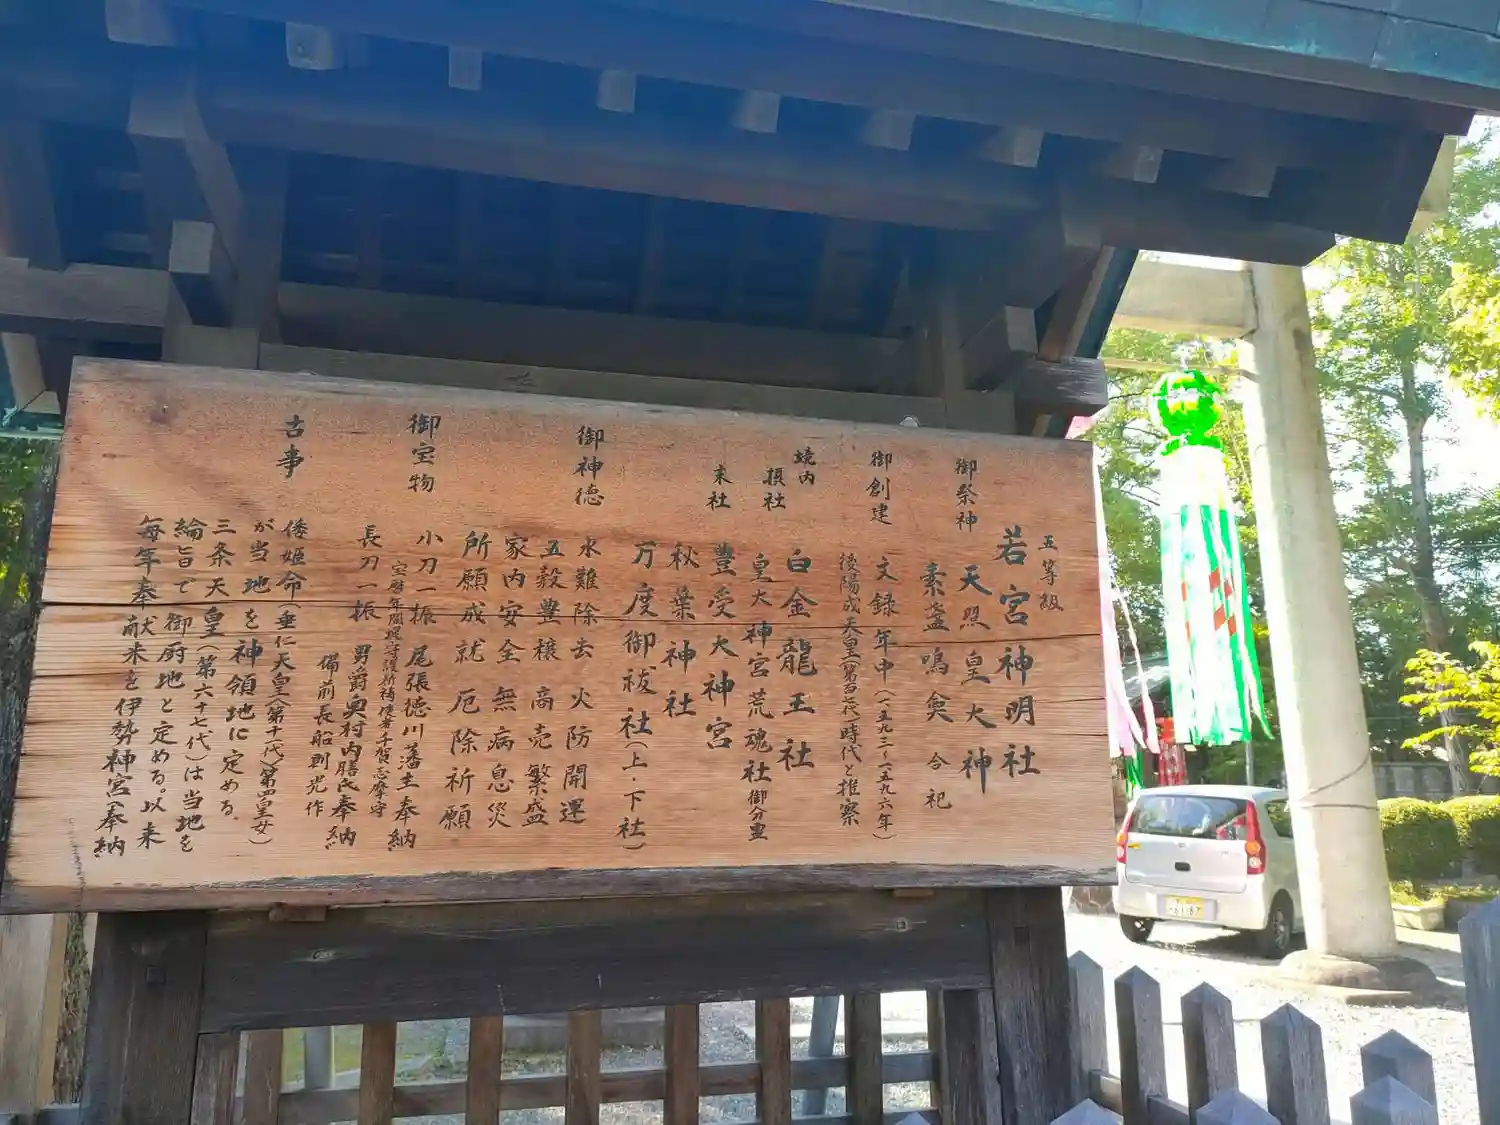 五等級
若宮神明社
御祭神
天照皇大神
素盞嗚奠 合祀
御創建
文録年中(一五九三-一五九六年)
後陽成天皇(第百七代)時代と推察
境内
摂社
白金龍王社
皇大神宮荒魂社御分霊
末社
豊受大神宮
秋葉神社
万度御祓社(上・下社)
御神徳
水難除去 火防開運
五穀豊穣 商売繁盛
家内安全 無病息災
所願成就 厄除祈願
御宝物
小刀一振 尾張徳川藩主奉納
宝暦年間視守護祈祷使者千賀志摩守
長刀一振 男爵奥村内膳氏奉納
備前長船則光作
古事
倭姫命(垂仁天皇(第十一代)第四皇女)
が当地を神領地に定める。
三条天皇(第六十七代)は当地を
綸旨で御厨地と定める。以来
毎年奉献米を伊勢神宮へ奉納